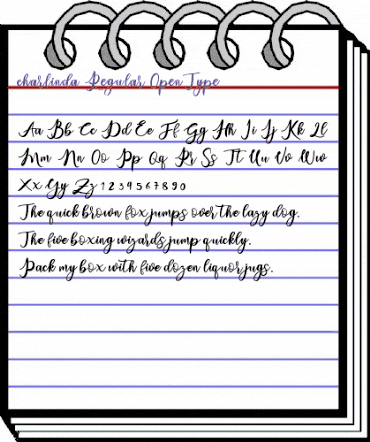 charlinda Regular OpenType
Aa Bb Cc Dd Ee Ff Gg Hh Ii Jj Kk Ll
Mm Nn Oo Pp Qq Rr Ss Tt Uu Vv Ww
Xx Yy Zz 1 2 3 4 5 6 7 8 9 0
The quick brown fox jumps over the lazy dog.
The five boxing wizards jump quickly.
Pack my box with five dozen liquor jugs.